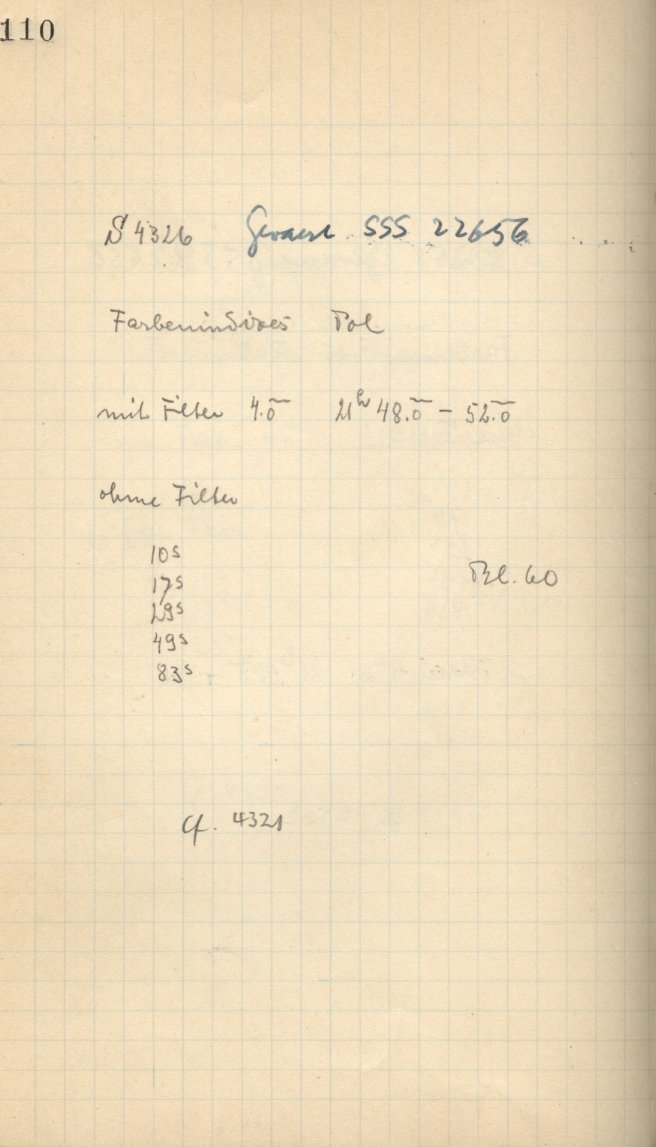 110
S 4326 Gevaert SSS 22656
Farbenindices Pol
mit Filter 4.0ᵐ 21ʰ 48.0ᵐ - 52.0ᵐ
ohne Filter
10ˢ
17ˢ
29ˢ
49ˢ
83ˢ
Bl. 60
cf. 4321